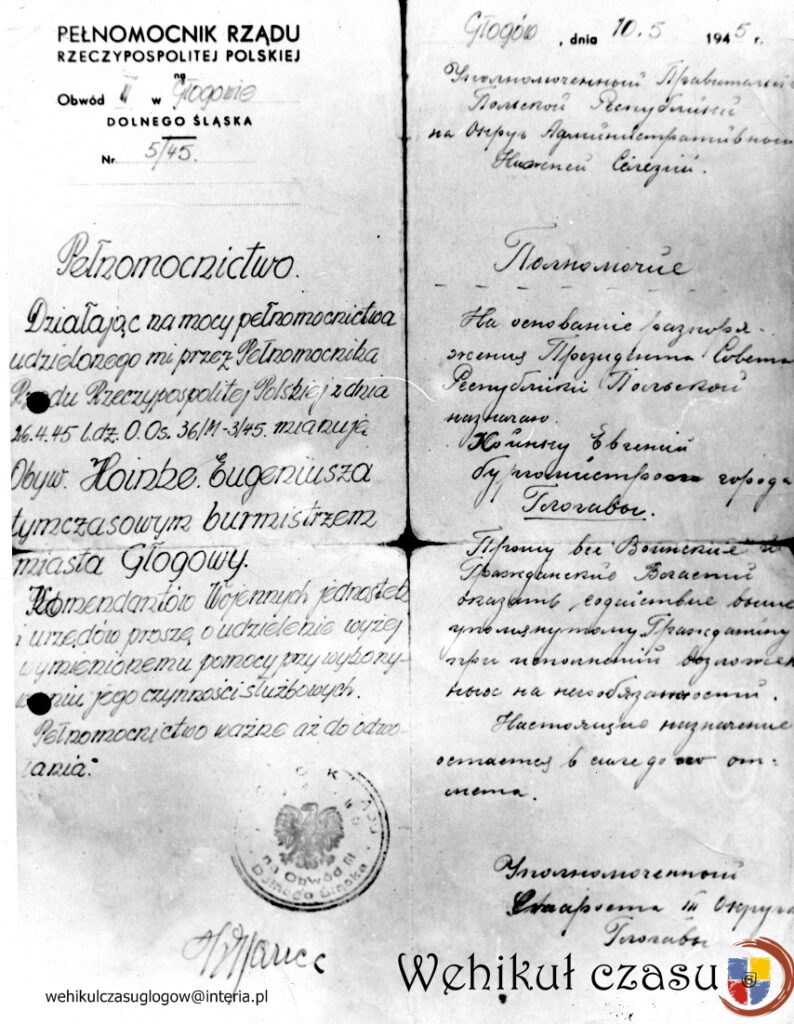 PEŁNOMOCNIK RZĄDU
RZECZYPOSPOLITEJ POLSKIEJ
na
Obwód III w Głogowie
DOLNEGO ŚLĄSKA
Nr. 5/45.
Pełnomocnictwo.
Działając na mocy pełnomocnictwa
udzielonego mi przez Pełnomocnika
Rządu Rzeczypospolitej Polskiej z dnia
26.4.45 l.dz. O.Os. 36/M-3/45. mianuję
Obyw. Hoinke. Eugeniusza
tymczasowym burmistrzem
miasta Głogowy.
Komendantów Wojennych jednostek
i urzędów proszę o udzielenie wyżej
wymienionemu pomocy przy wykony-
waniu jego czynności służbowych.
Pełnomocnictwo ważne aż do odwo-
łania."
na Obwód III
Dolnego Śląska
Głogów, dnia 10.5 1945 r.
Уполномоченный
Польской Республики
на Округ Административный
Нижней Силезии.
Полномочие
На основание распоря-
жения Президента Совета
Республики Польской
назначаю.
Евгений
бургомистром города
Глогавы.
Прошу все Воинские и
Гражданские
оказать содействие выше
упомянутому Гражданину
при исполнений возложен
ных на него обязанностий.
Настоящие назначение
остается в силе до от-
мета.
Уполномоченный
Староста III Округа
Глогавы
Wehikuł czasu
wehikulczasuglogow@interia.pl